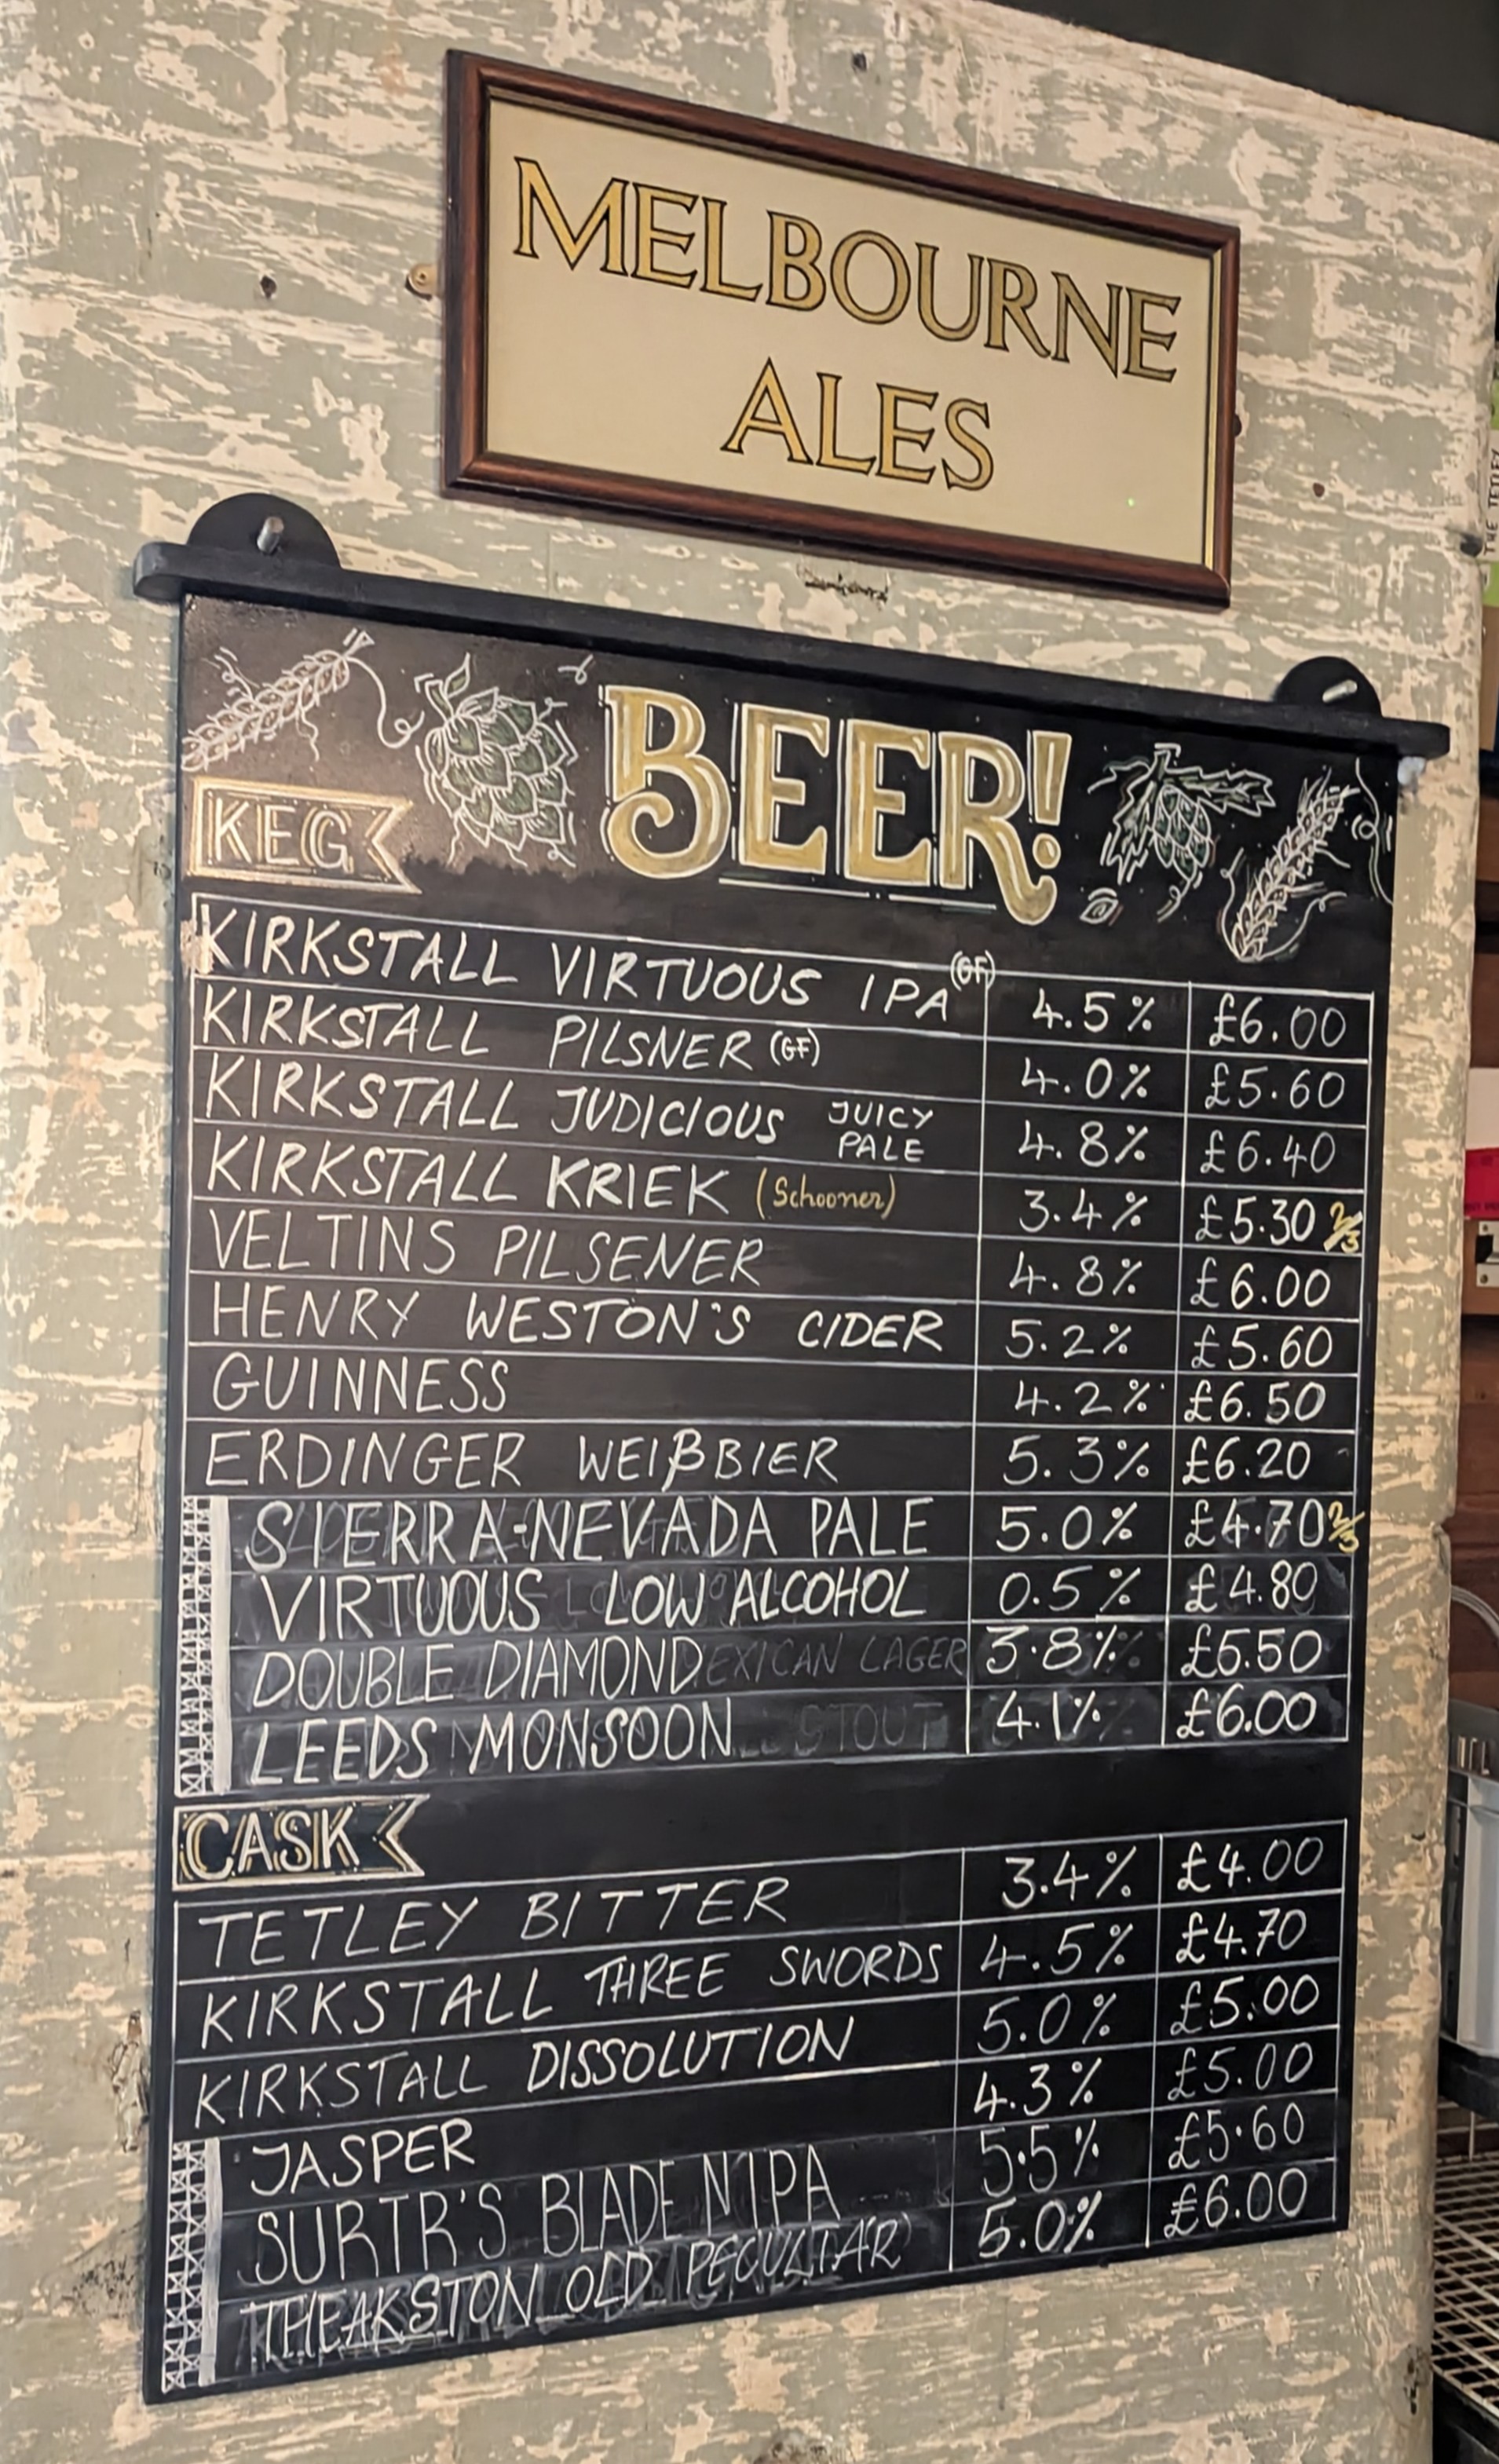 MELBOURNE
ALES
THE TETLEY
BEER!
KEG
KIRKSTALL VIRTUOUS IPA (GF) 4.5% £6.00
KIRKSTALL PILSNER (GF) 4.0% £5.60
KIRKSTALL JUDICIOUS JUICY PALE 4.8% £6.40
KIRKSTALL KRIEK (Schooner) 3.4% £5.30 2/3
VELTINS PILSENER 4.8% £6.00
HENRY WESTON'S CIDER 5.2% £5.60
GUINNESS 4.2% £6.50
ERDINGER WEIßBIER 5.3% £6.20
SIERRA-NEVADA PALE 5.0% £4.70 2/3
VIRTUOUS LOW ALCOHOL 0.5% £4.80
DOUBLE DIAMOND EXICAN LAGER 3.8% £5.50
LEEDS MONSOON STOUT 4.1% £6.00
CASK
TETLEY BITTER 3.4% £4.00
KIRKSTALL THREE SWORDS 4.5% £4.70
KIRKSTALL DISSOLUTION 5.0% £5.00
JASPER 4.3% £5.00
SURTR'S BLADE NIPA 5.5% £5.60
THEAKSTON OLD PECULIAR 5.0% £6.00